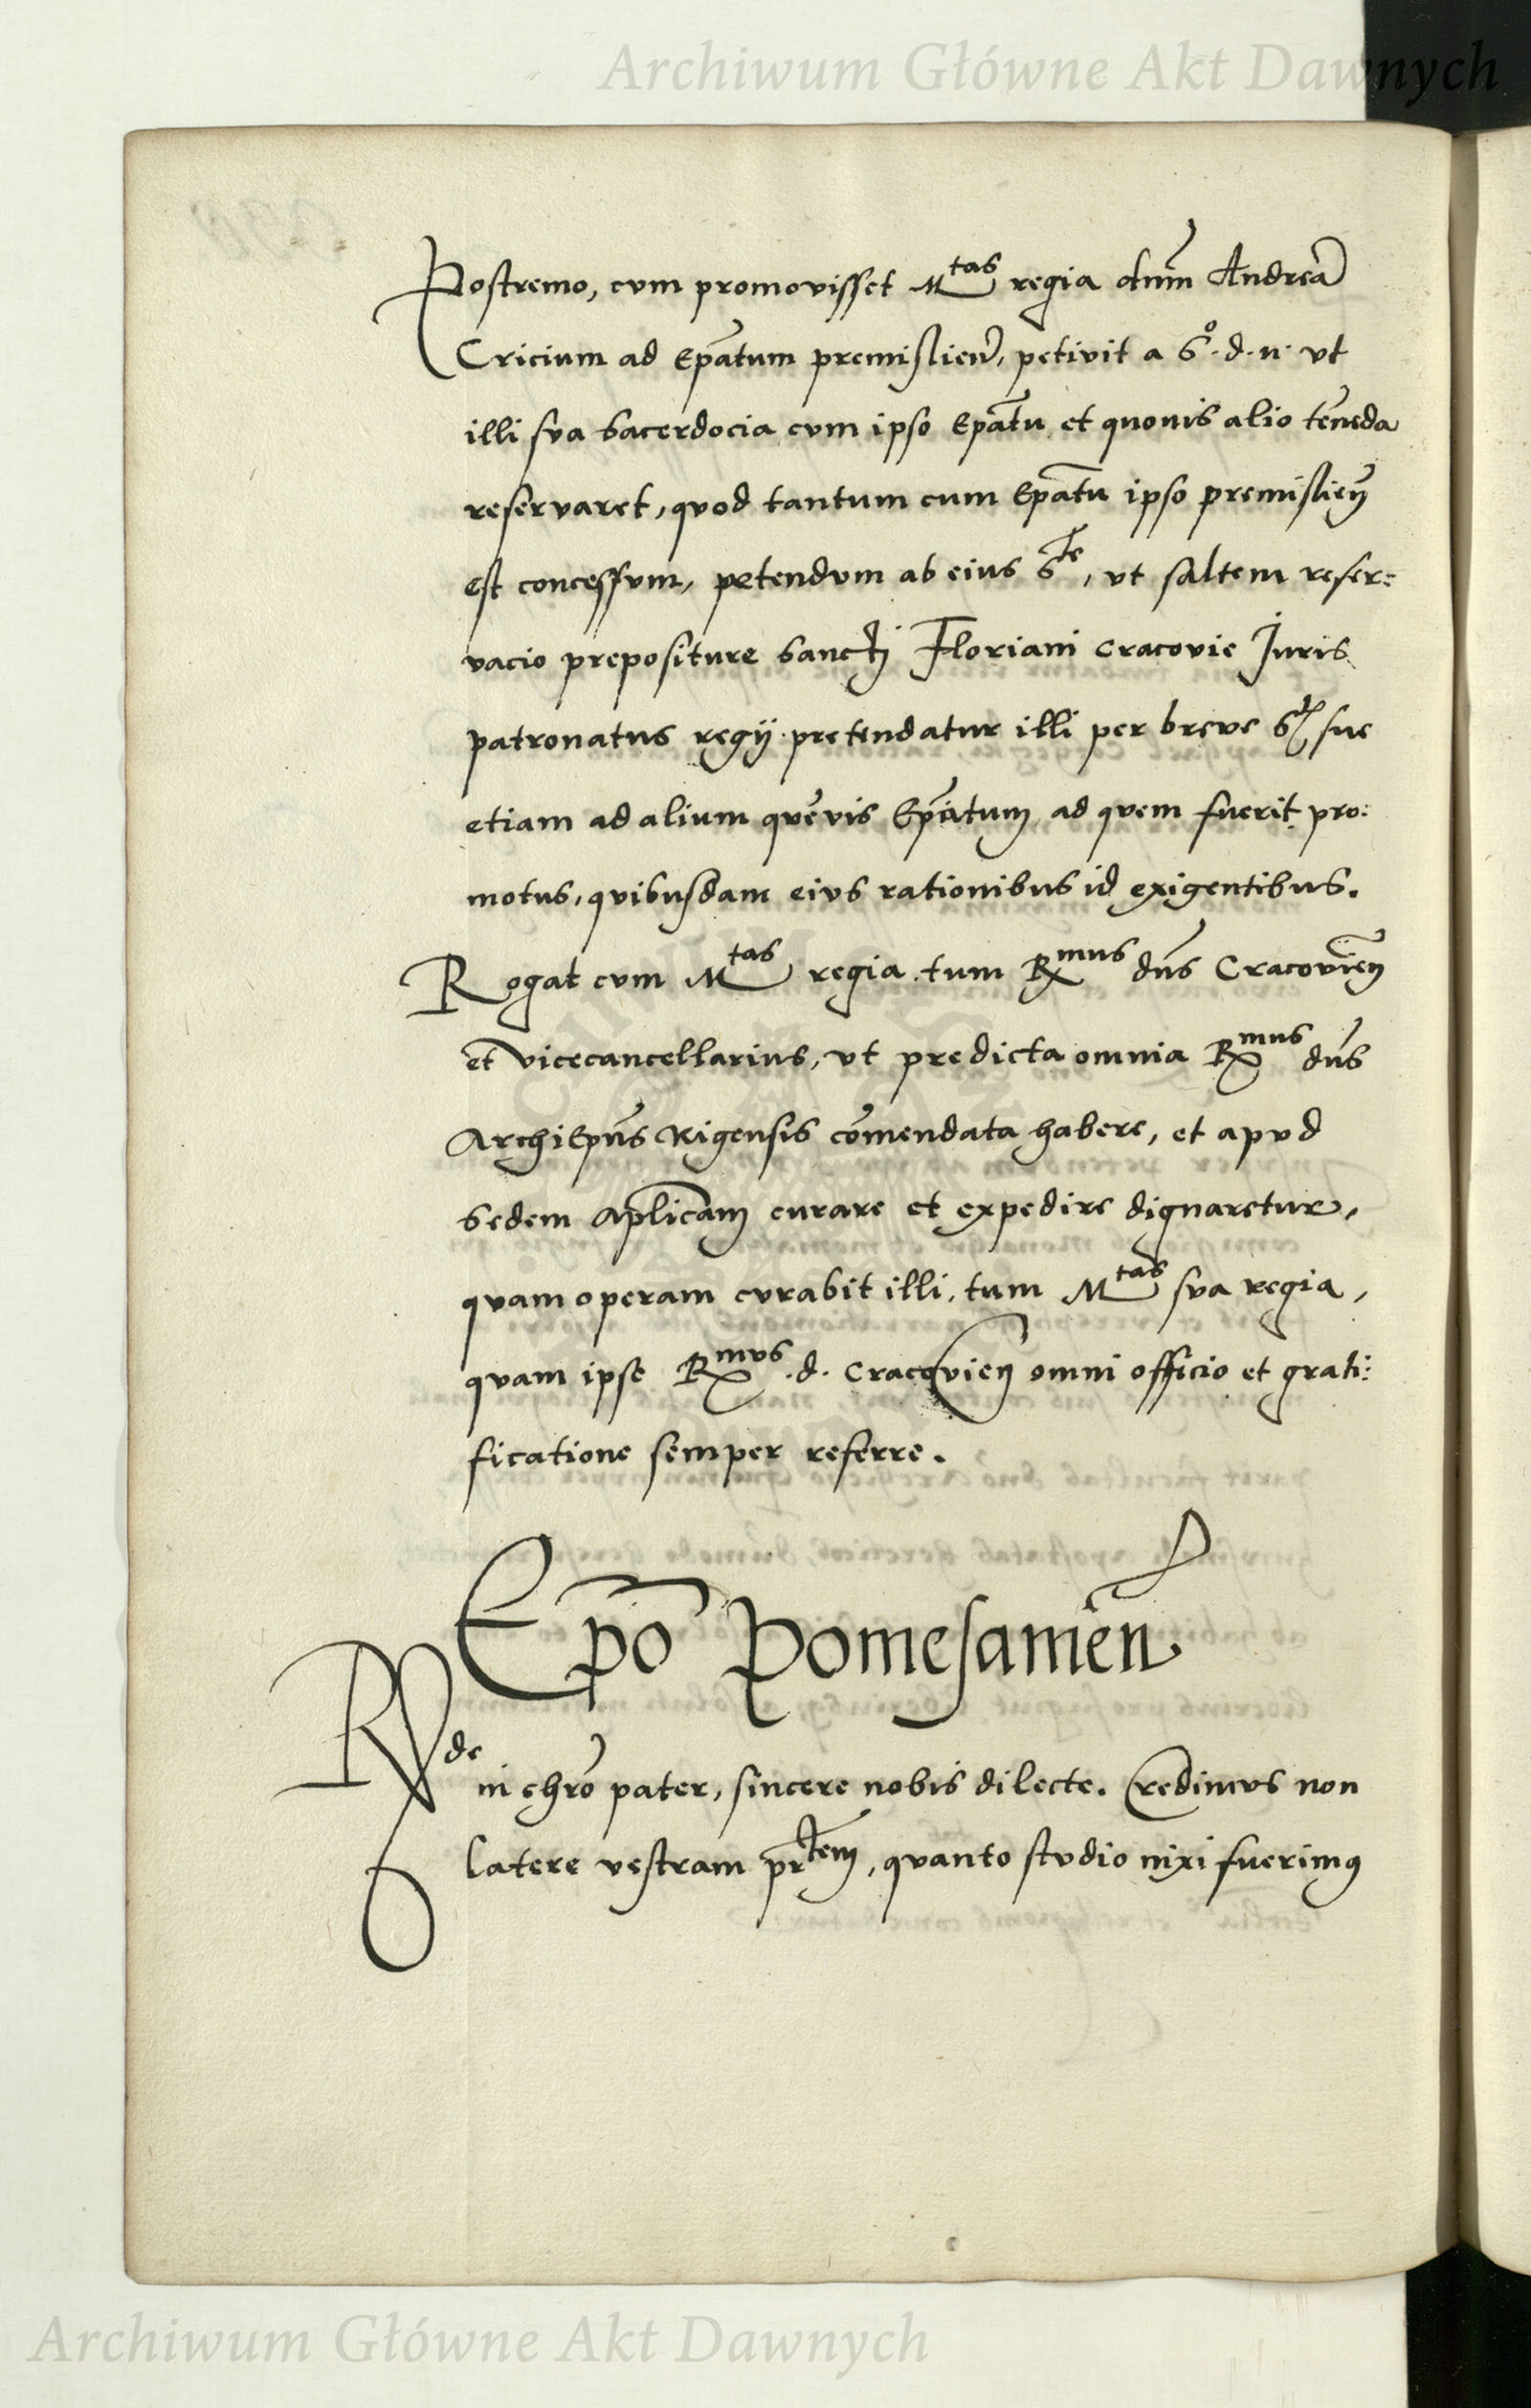 Archiwum Główne Akt Dawnych
Postremo, cum promovisset M^tas regia dnm̄ Andreā
Cricium ad Ep̄atum premislień, petivit a S^o. d. n. vt
illi sva sacerdocia cvm ipso Ep̄atu et quovis alio tēneda
reservaret, qvod tantum cum Ep̄atu ipso premislień
est concessvm, petendvm ab eius S^te, vt saltem reser:
vacio prepositure sancti Floriani Cracovie Juris
patronatus regij pretendatur illi per breve S^tis sue
etiam ad alium quēvis Ep̄atum ad qvem fuerit pro:
motus, qvibusdam eivs rationibus id exigentibus.
Rogat cvm M^tas regia tum R^mus dn̄s Cracovień
et vicecancellarius, vt predicta omnia R^mus dn̄s
ArchiEp̄us Rigensis cōmendata habere, et apvd
Sedem Aplicām curare et expedire dignaretur,
qvam operam cvrabit illi, tum M^tas sva regia,
qvam ipse R^mvs .d. Cracovień omni officio et grati:
ficatione semper referre.
Ep̄o Pomesanień
R^de in chrō pater, sincere nobis dilecte. Credimvs non
latere vestram pr̄^tem, qvanto stvdio nixi fuerimus
Archiwum Główne Akt Dawnych